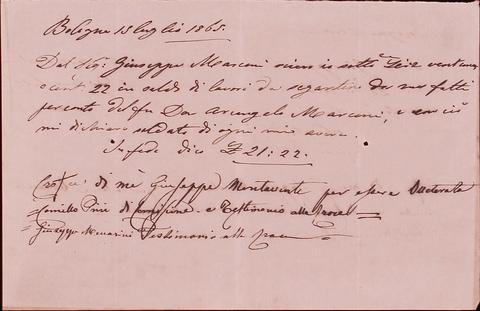 Bologna 13 luglio 1865.
Dal Sig: Giuseppe Marconi ricevo io sotto Lire ventuno
e cent. 22 in saldo di lavori da segantino da me fatti
per conto del fu Don Arcangelo Marconi, e con ciò
mi dichiaro saldato di ogni mio avere.
In fede dico £ 21:22.
Cro+ce di me Giuseppe per essere
Camillo di e Testimonio alla
Giuseppe Testimonio alla